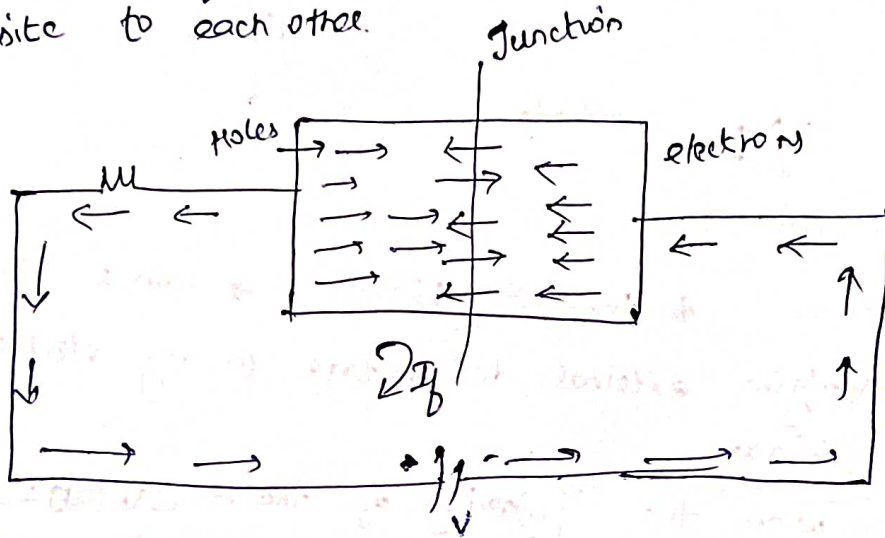 site to each other.
Junction
Holes
electrons
If
V